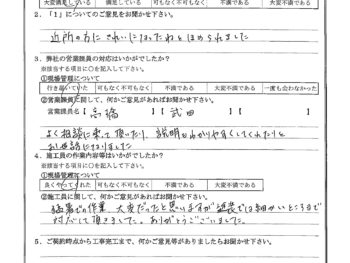 大変満足している 満足している 可も無く不可も無く 不満である 大変不満である
2.「1」についてのご意見をお聞かせ下さい。
近所の方にきれいになったねとほめられました
3. 弊社の営業課員の対応はいかがでしたか?
※該当する項目に○を記入して下さい。
①現場管理について
行き届いていた 可もなく不可もなく 不満である 大変不満である 一度も会わなかった
②営業課員に関して、何かご意見があればお聞かせ下さい。
営業課員名【 高橋 】【 武田 】【
よく相談に乗って頂いたり、説明もわかりやすくしてくれたりと
お世話になりました
4. 施工員の作業内容等はいかがでしたか?
※該当する項目に○を記入して下さい。
①現場管理について
良くやってくれた 可もなく不可もなく 不満である 大変不満である
②施工員に関して、何かご意見があればお聞かせ下さい。
猛暑での作業、大変だったと思いますが塗装では細かいところまで
対応して頂きました。ありがとうございました。
5. ご契約時点から工事完工まで、何かご意見等がありましたらお聞かせ下さい。